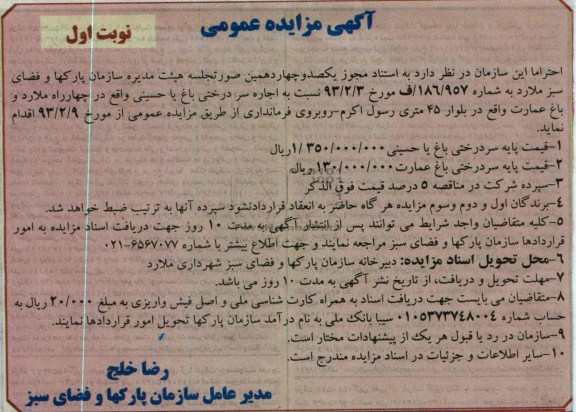 آگهی مزایده عمومی
نوبت اول
احتراما این سازمان در نظر دارد به استناد مجوز یکصدوچهاردهمین صورتجلسه هیئت مدیره سازمان پارکها و فضای
سبز ملارد به شماره ۱۸۶/۹۵۷/ف مورخ ۹۳/۲/۳ نسبت به اجاره سر درختی باغ یا حسینی واقع در چهارراه ملارد و
باغ عمارت واقع در بلوار ۴۵ متری رسول اکرم-روبروی فرمانداری از طریق مزایده عمومی از مورخ ۹۳/۲/۹ اقدام
نماید.
۱-قیمت پایه سردرختی باغ یا حسینی ۱/۳۵۰/۰۰۰/۰۰۰ریال
۲-قیمت پایه سردرختی باغ عمارت ۱۳۰/۰۰۰/۰۰۰ ریال
۳-سپرده شرکت در مناقصه ۵ درصد قیمت فوق الذکر
۴-برندگان اول و دوم وسوم مزایده هر گاه حاضر به انعقاد قراردادنشود سپرده آنها به ترتیب ضبط خواهد شد.
۵-کلیه متقاضیان واجد شرایط می توانند پس از انتشار آگهی به مدت ۱۰ روز جهت دریافت اسناد مزایده به امور
قراردادها سازمان پارکها و فضای سبز مراجعه نمایند و جهت اطلاع بیشتر با شماره ۶۵۶۷۰۷۷-۰۲۱
۶-محل تحویل اسناد مزایده: دبیرخانه سازمان پارکها و فضای سبز شهرداری ملارد
۷-مهلت تحویل و دریافت، از تاریخ نشر آگهی به مدت ۱۰ روز می باشد.
۸-متقاضیان می بایست جهت دریافت اسناد به همراه کارت شناسی ملی و اصل فیش واریزی به مبلغ ۲۰/۰۰۰ ریال به
حساب شماره ۰۱۰۵۳۷۳۷۴۸۰۰۴ سیبا بانک ملی به نام درآمد سازمان پارکها تحویل امور قراردادها نمایند.
۹-سازمان در رد یا قبول هر یک از پیشنهادات مختار است.
۱۰-سایر اطلاعات و جزئیات در اسناد مزایده مندرج است.
رضا خلج
مدیر عامل سازمان پارکها و فضای سبز